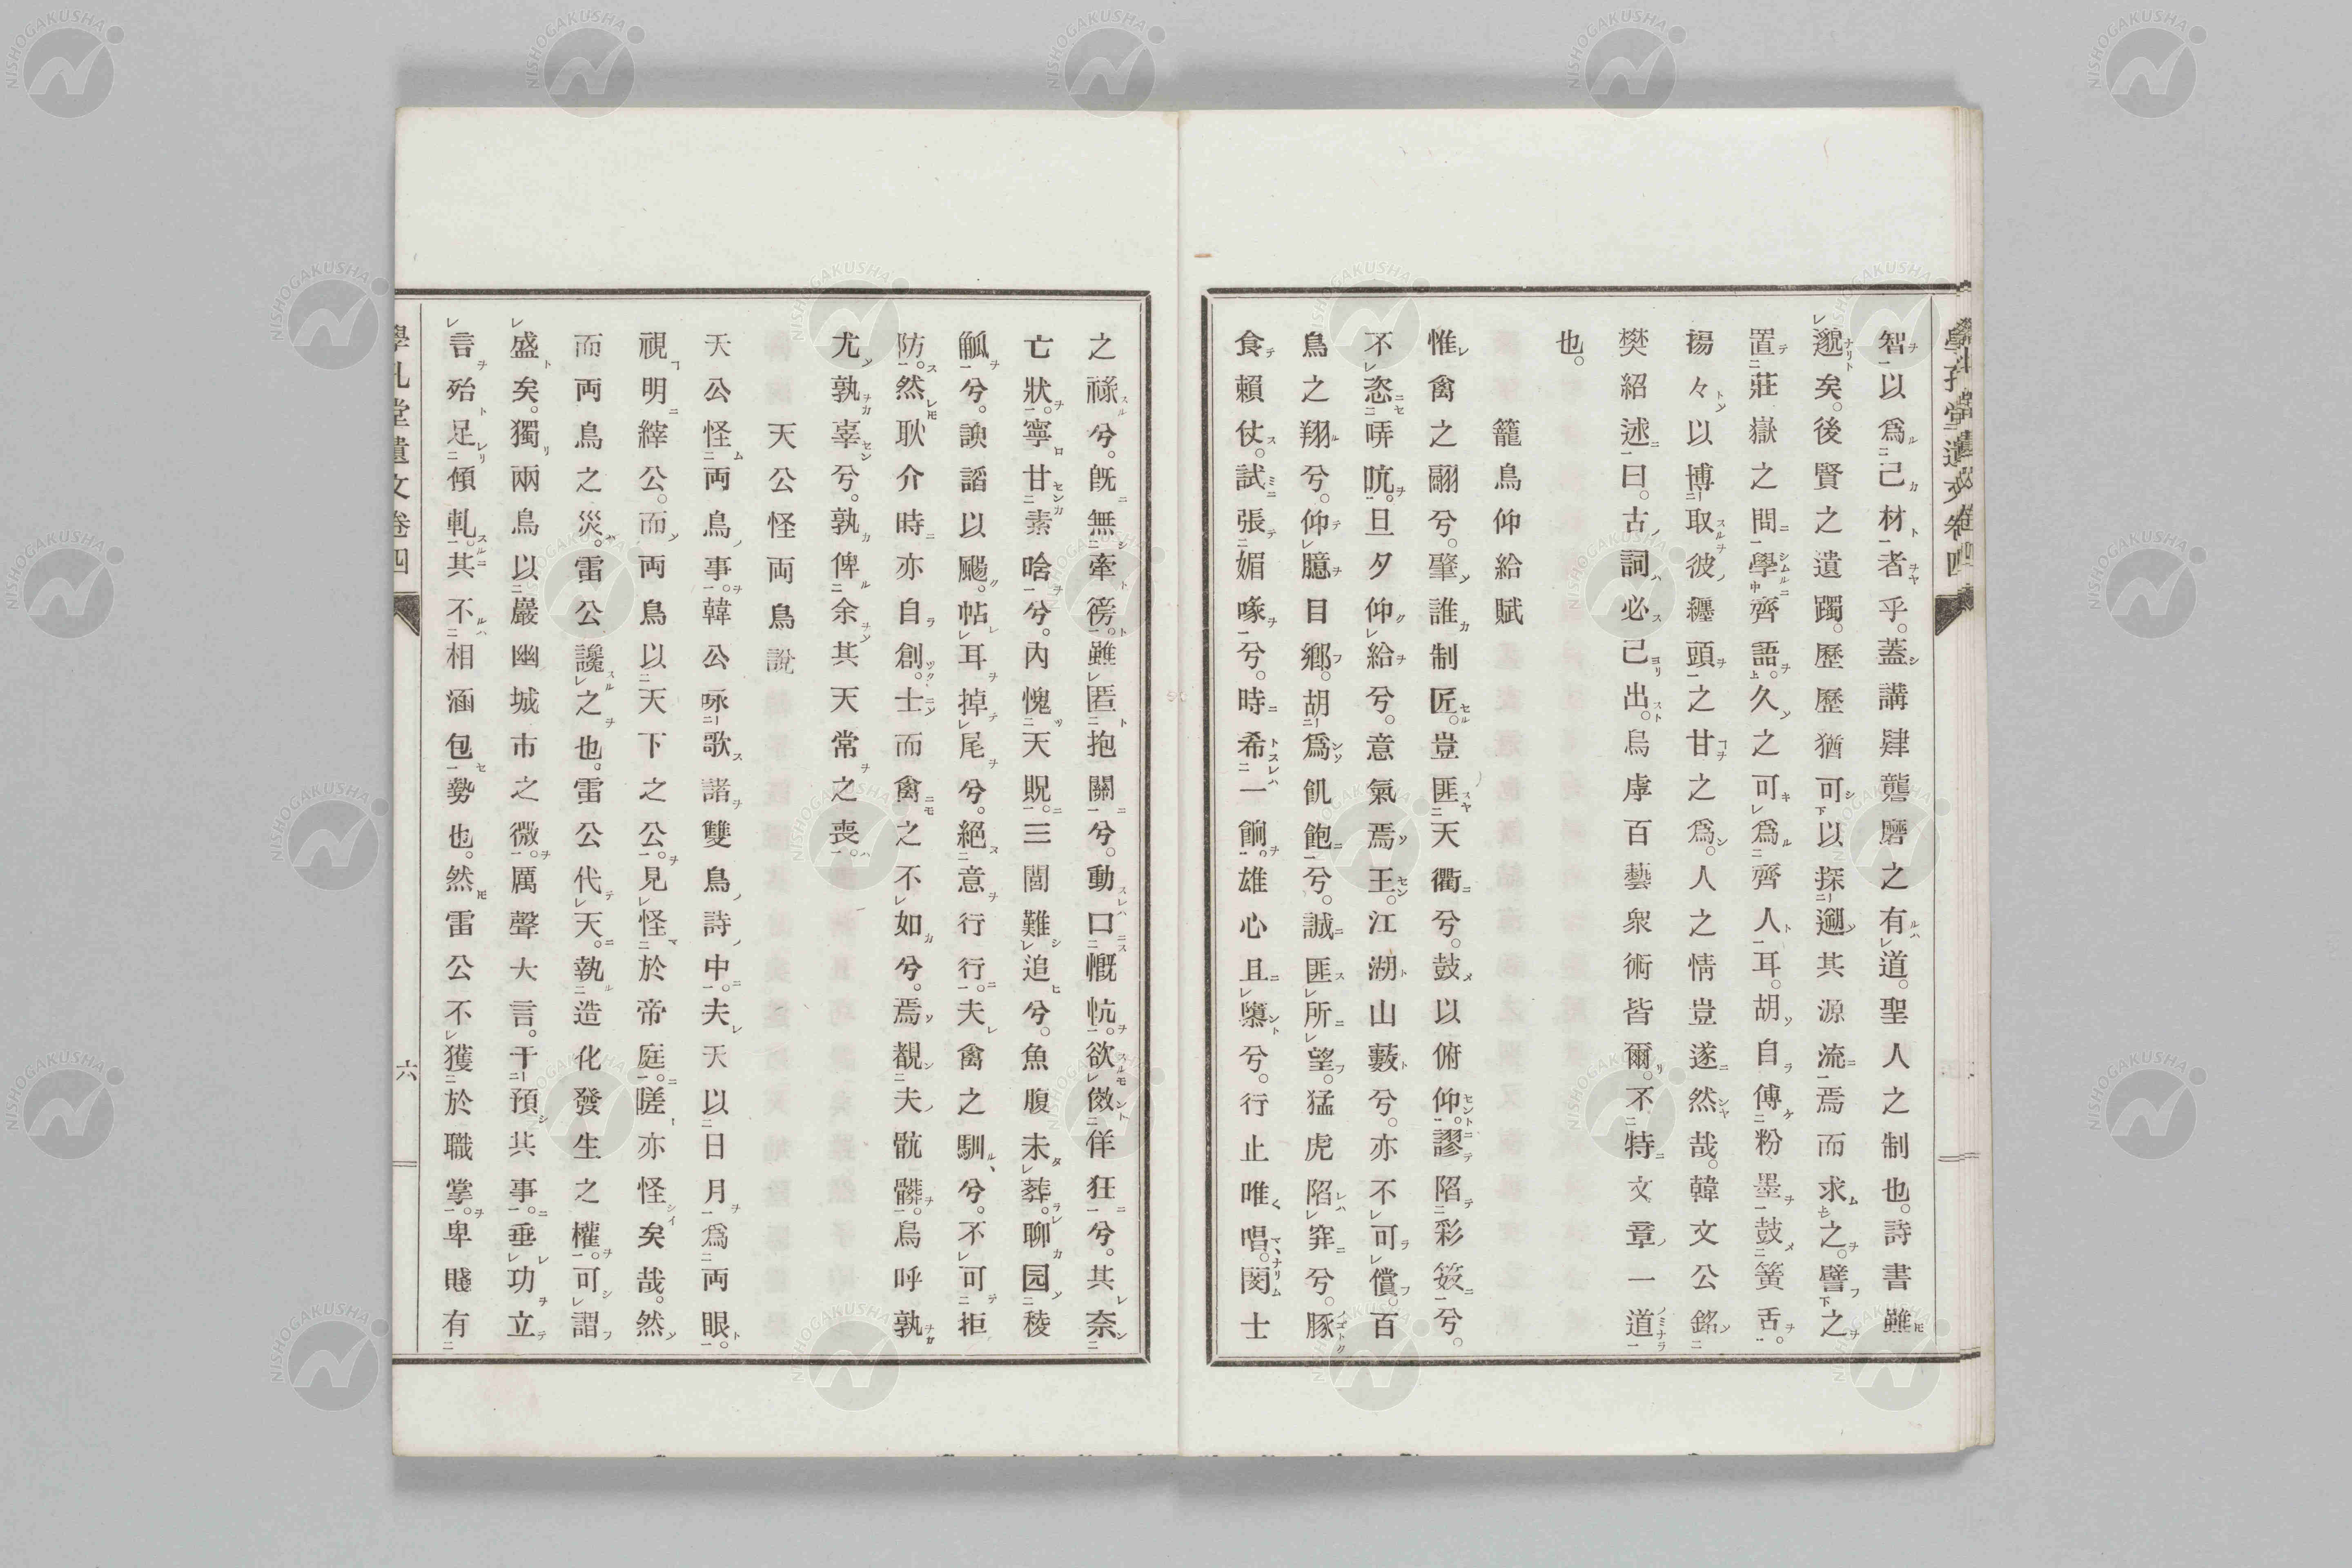 智以爲己材者乎。蓋講肄礱磨之有道。聖人之制也。詩書雖
邈矣。後賢之遺躅。歷歷猶可以探遡其源流焉而求之。譬之
置莊嶽之間學齊語。久之可爲齊人耳。胡自傅粉墨鼓簧舌。
揚々以博取彼纏頭之甘之爲。人之情豈遂然哉。韓文公銘
樊紹述曰。古詞必己出。烏虖百藝衆術皆爾。不特文章一道
也。
籠鳥仰給賦
惟禽之翮兮。肇誰制匠。豈匪天衢兮。鼓以俯仰。謬陷彩笯兮。
不恣哢吭。旦夕仰給兮。意氣焉王。江湖山藪兮。亦不可償。百
鳥之翔兮。仰臆目鄉。胡爲飢飽兮。誠匪所望。猛虎陷穽兮。豚
食賴仗。試張媚喙兮。時希一餉。雄心且隳兮。行止唯唱。閔士
之祿兮。旣無牽徬。雖匿抱關兮。動口慨忼。欲倣佯狂兮。其奈
亡狀。寧甘素啥兮。內愧天貺。三閭難追兮。魚腹未葬。聊园稜
觚兮。諛謟以颺。帖耳掉尾兮。絕意行行。夫禽之馴兮。不可拒
防。然耿介時亦自創。士而禽之不如兮。焉覩夫骯髒。烏呼孰
尤孰辜兮。孰俾余其天常之喪。
天公怪両鳥說
天公怪両鳥事。韓公咏歌諸雙鳥詩中。夫天以日月爲両眼。
視明繂公。而両鳥以天下之公。見怪於帝庭。嗟亦怪矣哉。然
而両鳥之災。雷公讒之也。雷公代天。執造化發生之權。可謂
盛矣。獨兩鳥以巖幽城市之微。厲聲大言。干預其事。垂功立
言殆足傾軋。其不相涵包勢也。然雷公不獲於職掌。卑賤有
學孔堂遺文卷四
六
學孔堂遺文卷四
NISHOGAKUSHA